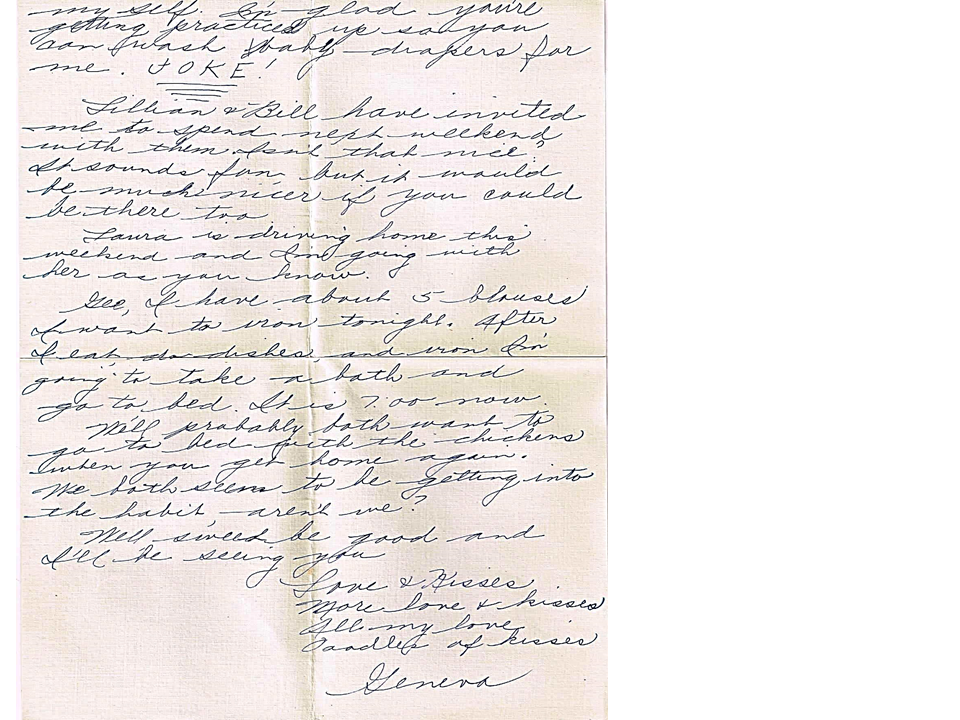 my self. I'm glad you're
getting practiced up so you
can wash baby diapers for
me. JOKE!
Lillian & Bill have invited
me to spend next weekend
with them. Isn't that nice?
It sounds fun but it would
be much nicer if you could
be there too
Laura is driving home this
weekend and I'm going with
her as you know.
Gee, I have about 5 blouses
I want to iron tonight. After
I eat, do dishes and iron I'm
going to take a bath and
go to bed. It is 7:00 now.
We'll probably both want to
go to bed with the chickens
when you get home again.
We both seem to be getting into
the habit, aren't we?
Well sweet be good and
I'll be seeing you
Love & Kisses
More love & kisses
All my love
Oodles of kisses
Geneva